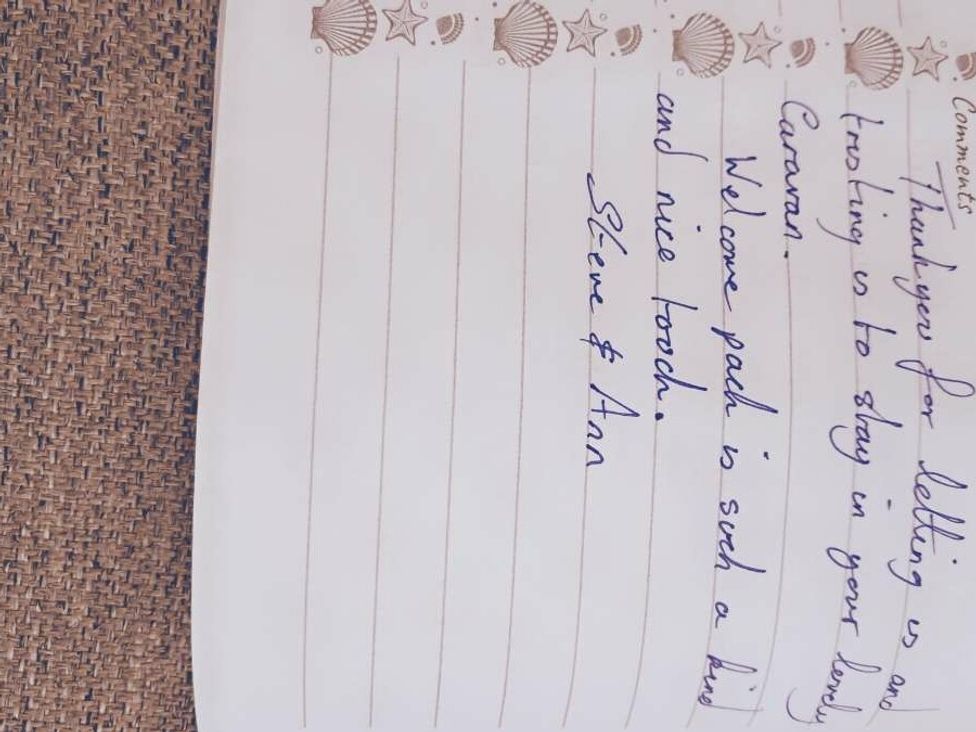 Comments
Thankyou for letting us and
trusting us to stay in your lovely
Caravan.
Welcome pack is such a kind
and nice touch.
Steve & Ann